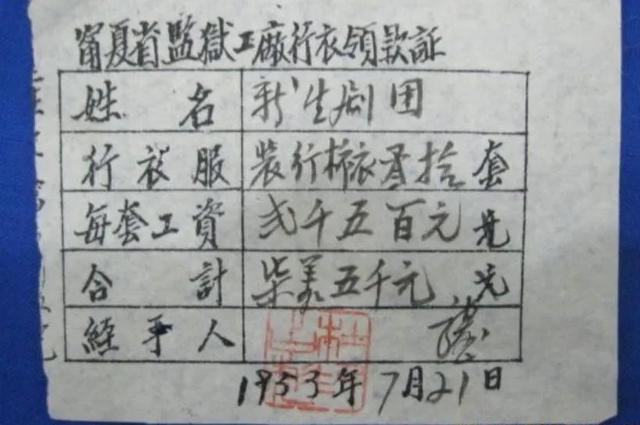 甯夏省監獄工廠行衣領款証
姓名 新生剧团
行衣服 裝行棉衣叁拾套
每套工資 弍千五百元 元
合計 柒萬五千元 元
經手人
1953年7月21日